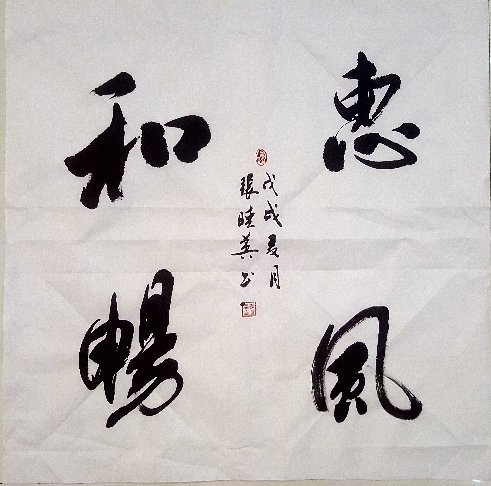 惠風
和暢
戊戌夏月
張睦英书